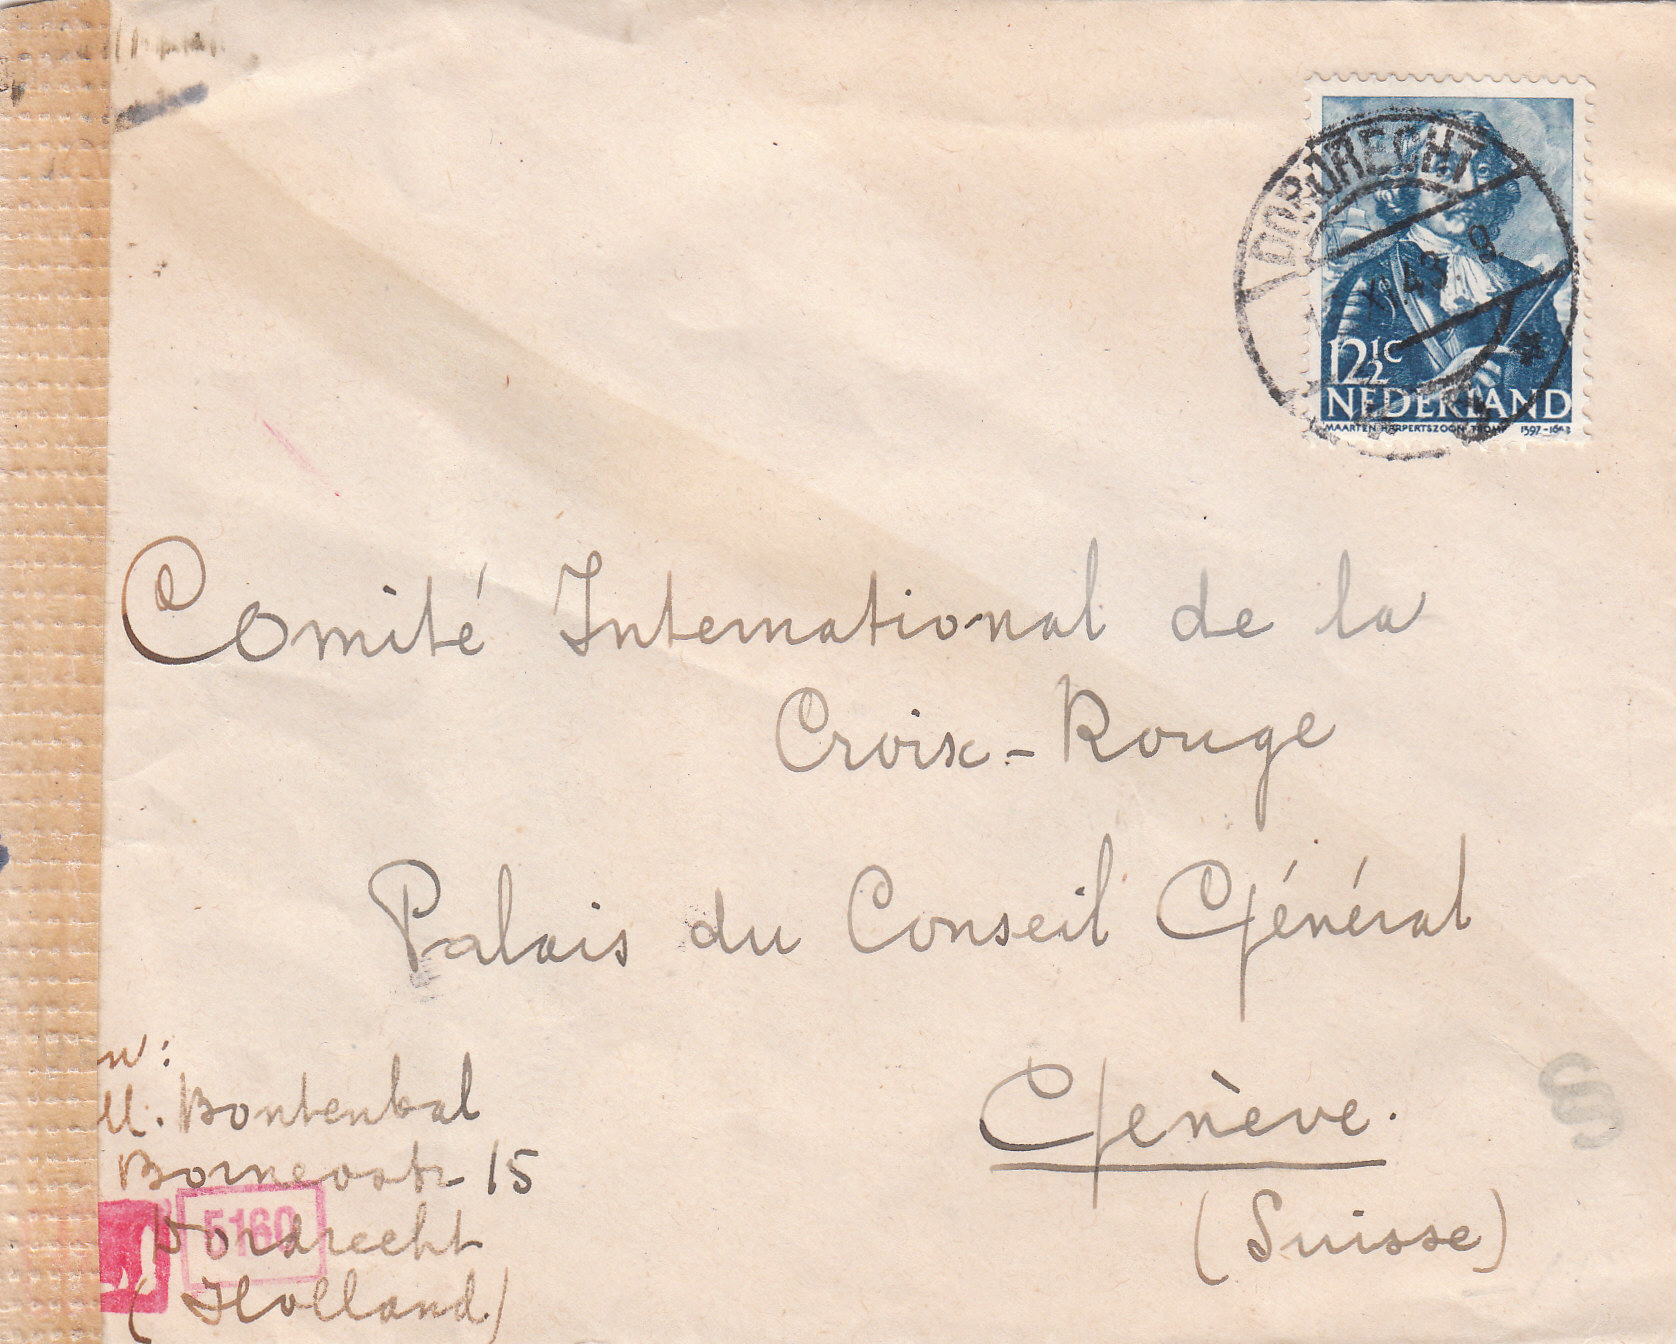 DORDRECHT
XI.43. 9
12½C
NEDERLAND
MAARTEN HARPERTSZOON TROMP 1597-1653
Comité International de la
Croix-Rouge
Palais du Conseil Général
Genève.
(Suisse)
M. Bontenbal
Borneostr 15
5160
Dordrecht
(Holland)